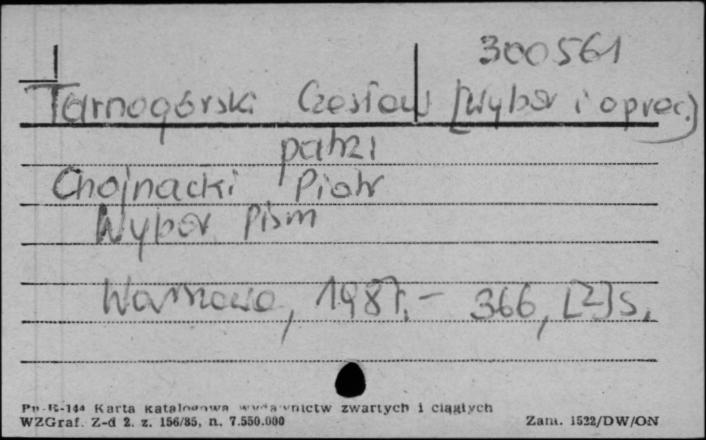 300561
Tarnogórski Czesław [Wybór i oprac.)
patrz
Chojnacki Piotr
Wybór Pism
Warszawa, 1987. - 366, [2] s.
Pu-B-144 Karta katalogowa wydawnictw zwartych i ciągłych
WZGraf. Z-d 2. z. 156/85, n. 7.550.000
Zam. 1522/DW/ON